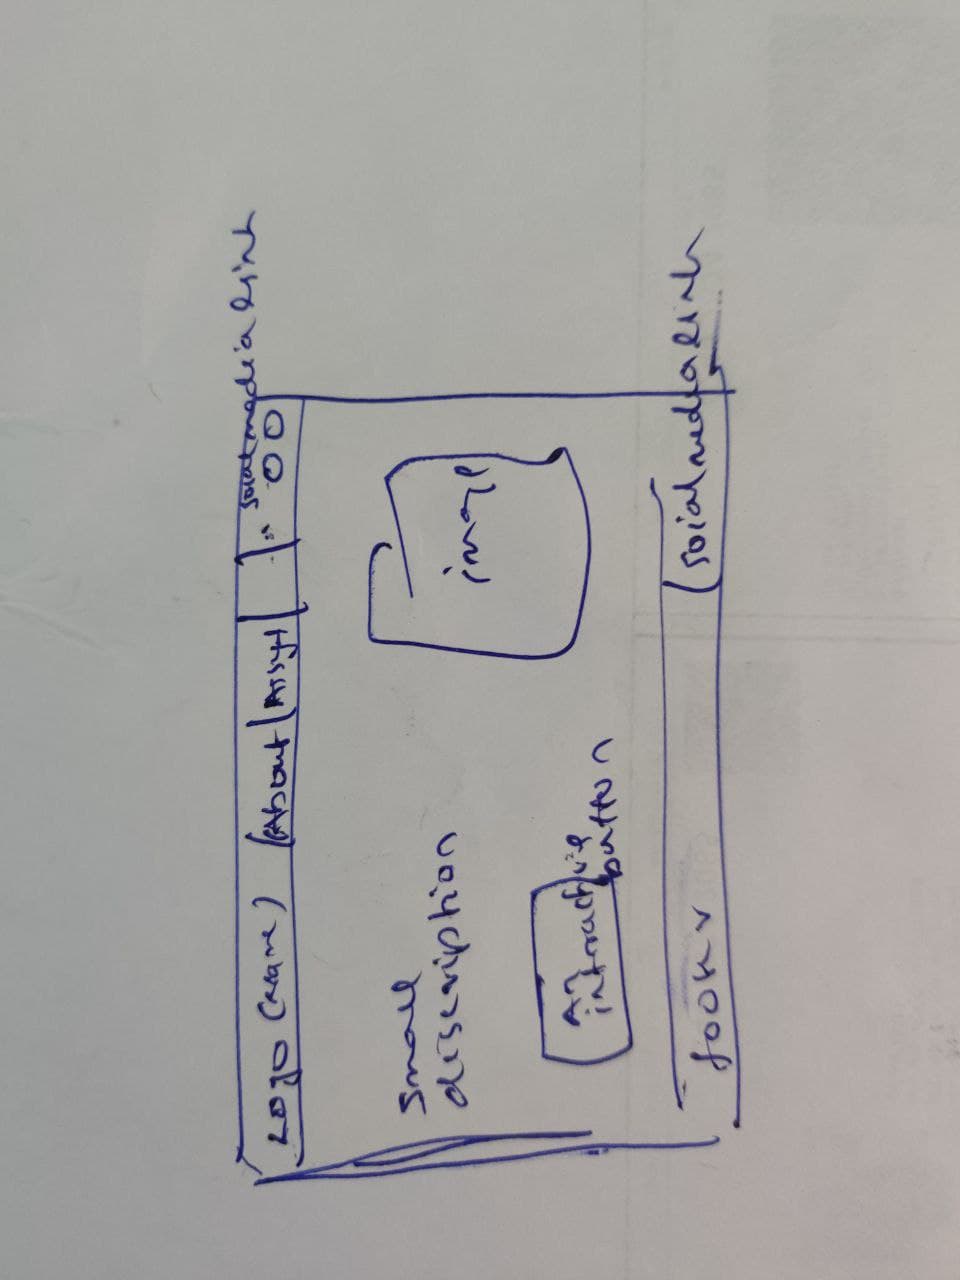 Logo (Name) About
soialmedia link
small
discription
image
An
intractive
button
footer
soialmedia link